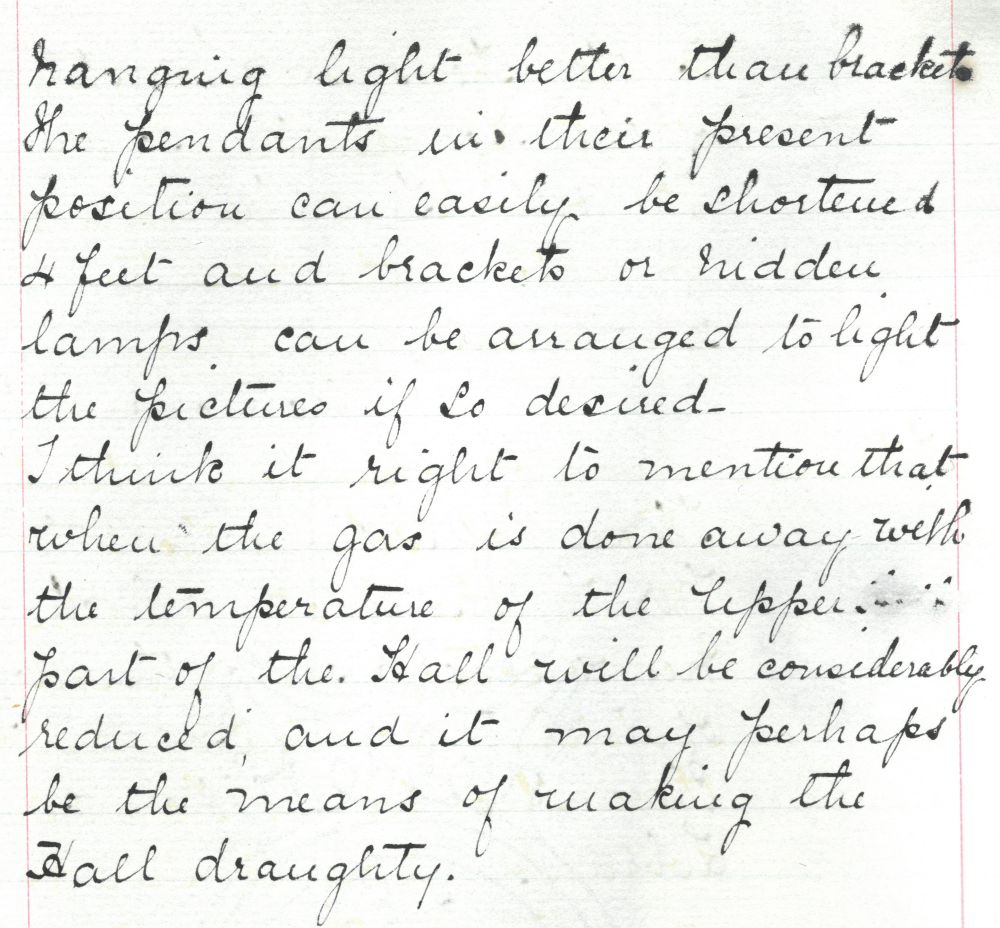 hanging light better than brackets
The pendants in their present
position can easily be shortened
4 feet and brackets or hidden
lamps can be arranged to light
the pictures if so desired -
I think it right to mention that
when the gas is done away with
the temperature of the Upper
part of the Hall will be considerably
reduced, and it may perhaps
be the means of making the
Hall draughty.